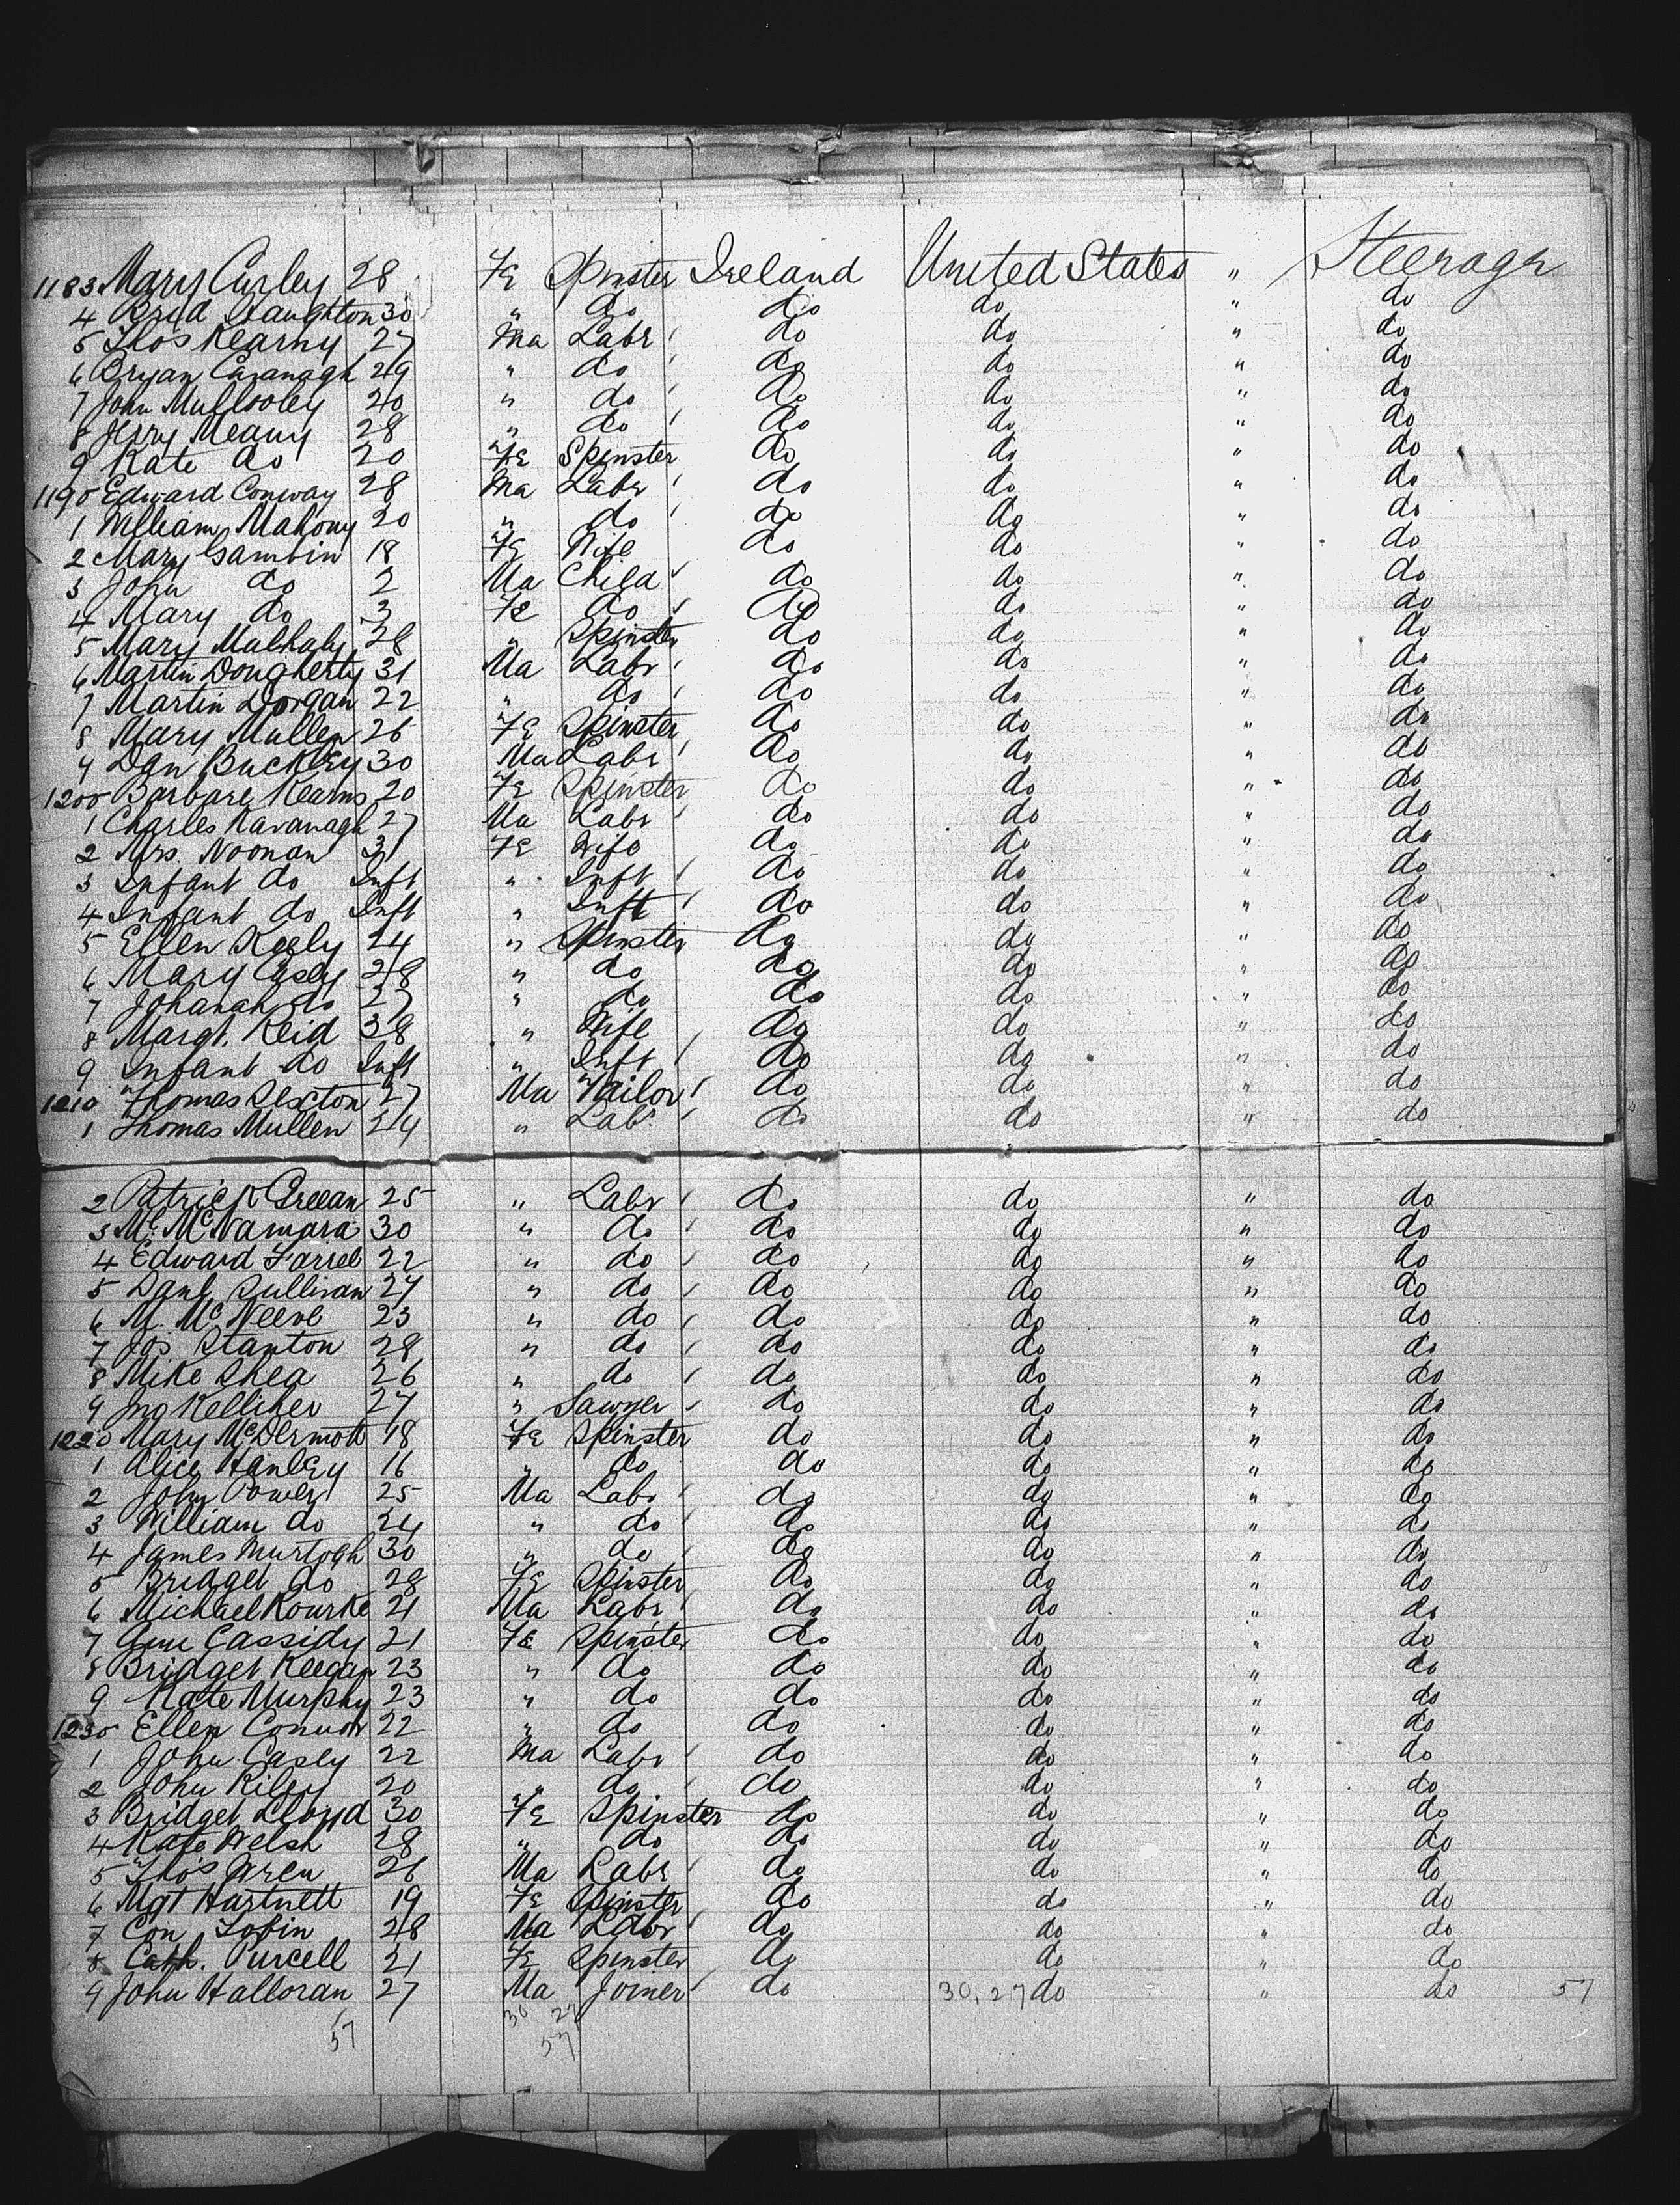 1183 Mary Curley 28 Fe Spinster Ireland United States " Steerage
4 Brid Naughton 30 " do do do " do
5 Thos Kearny 27 Ma Labr do do " do
6 Bryan Cavanagh 29 " do do do " do
7 John Mullooley 20 " do do do " do
8 Jerry Meany 28 " do do do " do
9 Kate do 20 Fe Spinster do do " do
1190 Edward Conway 28 Ma Labr do do " do
1 William Mahony 20 " do do do " do
2 Mary Gambin 18 Fe Wife do do " do
3 John do 2 Ma Child do do " do
4 Mary do 3 Fe do do do " do
5 Mary Mulhaly 28 " Spinster do do " do
6 Martin Dougherty 31 Ma Labr do do " do
7 Martin Dorgan 22 " do do do " do
8 Mary Mullen 26 Fe Spinster do do " do
9 Dan Buckley 30 Ma Labr do do " do
1200 Barbare Kearns 20 Fe Spinster do do " do
1 Charles Kavanagh 27 Ma Labr do do " do
2 Mrs. Noonan 31 Fe Wife do do " do
3 Infant do Inft " Inft do do " do
4 Infant do Inft " Inft do do " do
5 Ellen Keely 24 " Spinster do do " do
6 Mary Casey 28 " do do do " do
7 Johanah do 27 " do do do " do
8 Margt. Reid 38 " Wife do do " do
9 Infant do Inft " Inft do do " do
1210 Thomas Sexton 27 Ma Tailor do do " do
1 Thomas Mullen 24 " Labr do do " do
2 Patrick Greean 25 " Labr do do " do
3 Ml McNamara 30 " do do do " do
4 Edward Farrel 22 " do do do " do
5 Danl Sullivan 24 " do do do " do
6 M. McNeeve 23 " do do do " do
7 Jos Stanton 28 " do do do " do
8 Mike Shea 26 " do do do " do
9 Jno Kelliher 27 " Sawyer do do " do
1220 Mary McDermott 18 Fe Spinster do do " do
1 Alice Hanley 16 " do do do " do
2 John Power 25 Ma Labr do do " do
3 William do 24 " do do do " do
4 James Murtogh 30 " do do do " do
5 Bridget do 28 Fe Spinster do do " do
6 Michael Rourke 21 Ma Labr do do " do
7 Ann Cassidy 21 Fe Spinster do do " do
8 Bridget Keegan 23 " do do do " do
9 Kate Murphy 23 " do do do " do
1230 Ellen Connor 22 " do do do " do
1 John Casey 22 Ma Labr do do " do
2 John Riley 20 " do do do " do
3 Bridget Lloyd 30 Fe Spinster do do " do
4 Kate Welsh 28 " do do do " do
5 Thos Wren 26 Ma Labr do do " do
6 Mgt Hartnett 19 Fe Spinster do do " do
7 Con Tobin 28 Ma Labr do do " do
8 Cath. Purcell 21 Fe Spinster do do " do
9 John Halloran 27 Ma Joiner do 30,27 do " do 57
30 27
57 57